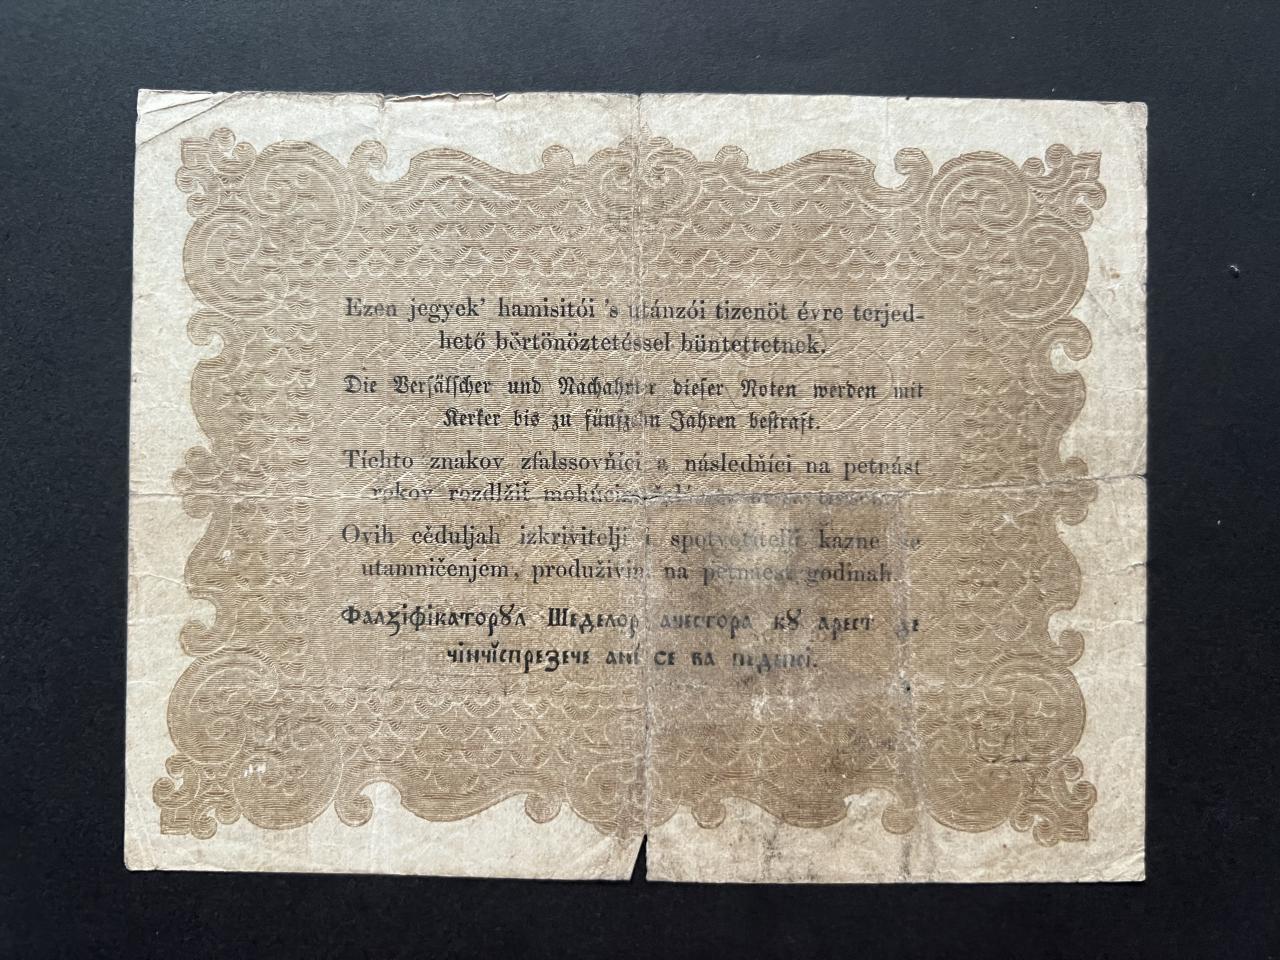 Ezen jegyek’ hamisitói ’s utánzói tizenöt évre terjed-
hető börtönöztetéssel büntettetnek.
Die Verfälscher und Nachahmer dieser Noten werden mit
Kerker bis zu fünfzehn Jahren bestraft.
Tíchto znakov zfalssovňíci a následňíci na petnást
rokov rozdlžit
Ovih cěduljah izkrivitelji i spotvoritelji kazne se
utamničenjem, produživim na petnaest godinah.
Фалзіфікаторꙋл Шеделор ачестора кꙋ арест де
чінчĭспрезече ані се ва педепсі.